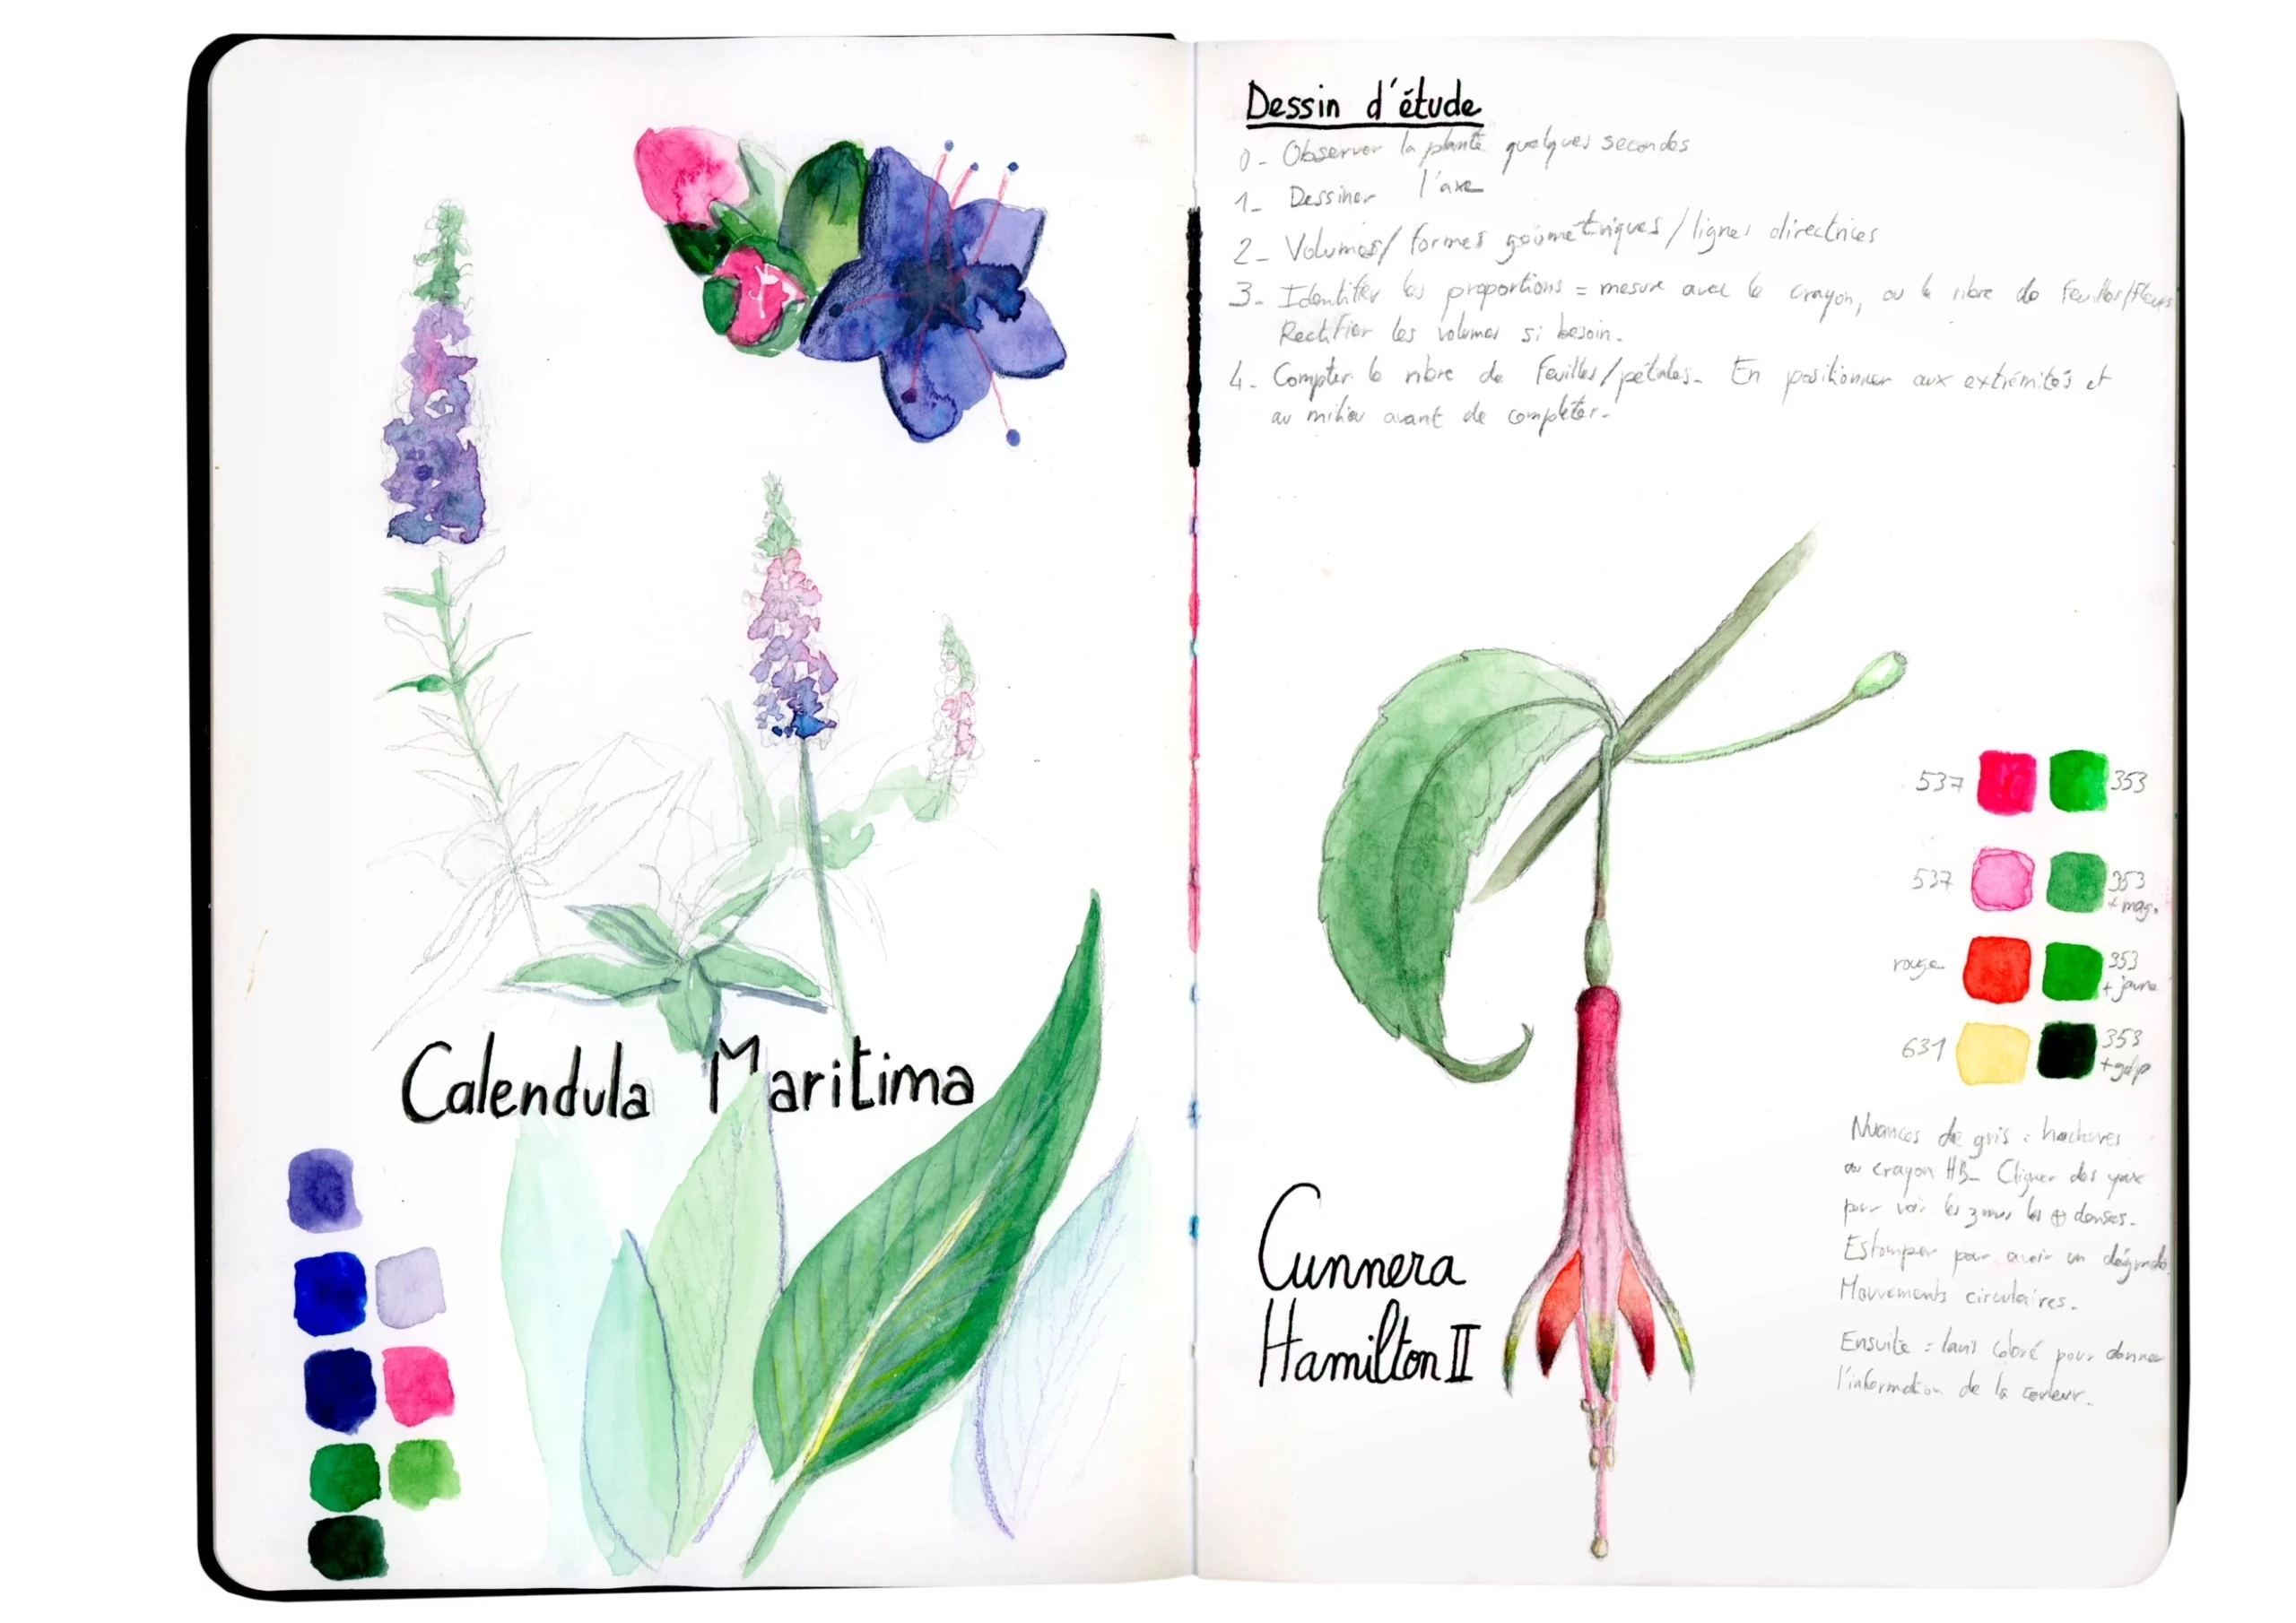 Calendula Maritima
Dessin d'étude
0- Observer la plante quelques secondes
1- Dessiner l'axe
2- Volumes/ formes géométriques/lignes directrices
3- Identifier les proportions = mesure avec le crayon, ou le nbre de feuilles/fleurs
Rectifier les volumes si besoin.
4- Compter le nbre de feuilles/pétales. En positionner aux extrémités et
au milieu avant de compléter.
537 353
537 353
+ mag.
rouge 353
+ jaune
631 353
+gdp
Nuances de gris = hachures
au crayon HB_ Cligner des yeux
pour voir les zones les ⊕ denses.
Estomper pour avoir un dégradé.
Mouvements circulaires.
Ensuite = lavis coloré pour donner
l'information de la couleur.
Cunnera
Hamilton II